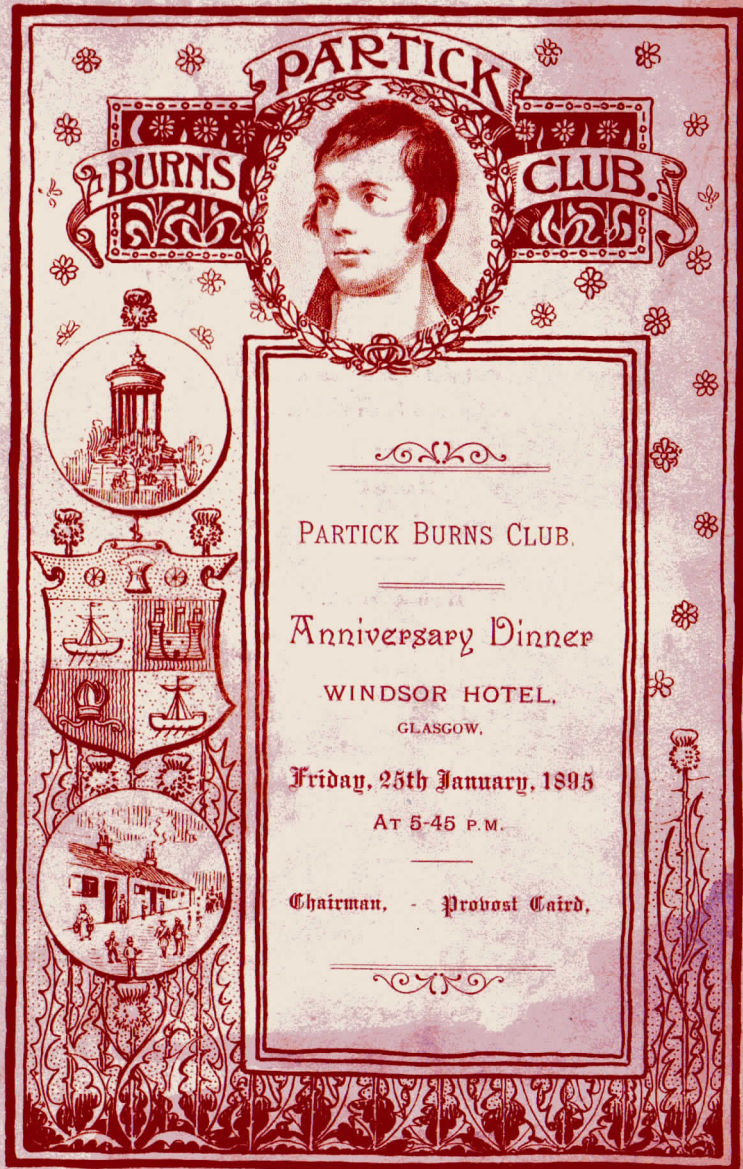 PARTICK
BURNS CLUB.
PARTICK BURNS CLUB.
Anniversary Dinner
WINDSOR HOTEL,
GLASGOW,
Friday, 25th January, 1895
AT 5-45 P.M.
Chairman, - Provost Caird,